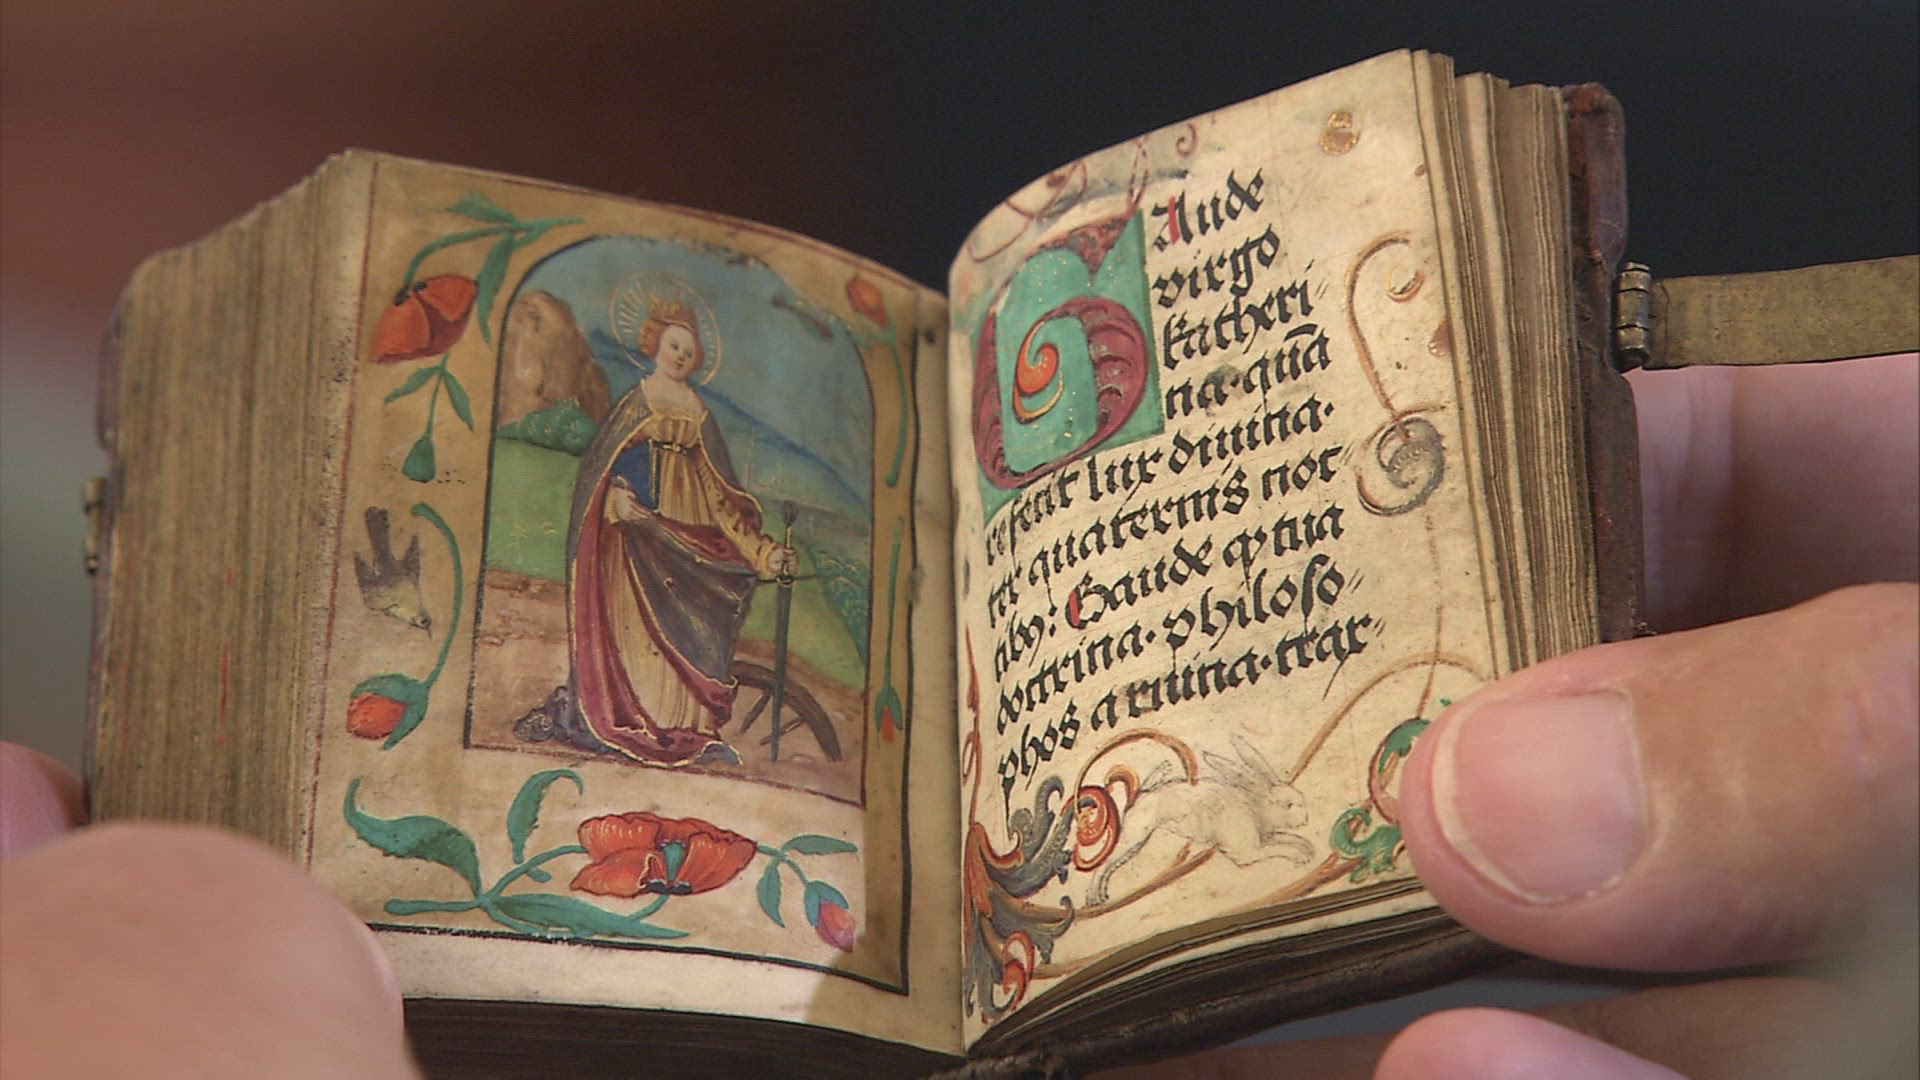 GAude
virgo
katheri=
na·quā
refecit lux diuina·
ter quaternis noc=
tibꝰ: Gaude ꝙ tua
doctrina·philoso=
phos a ruina·trax=